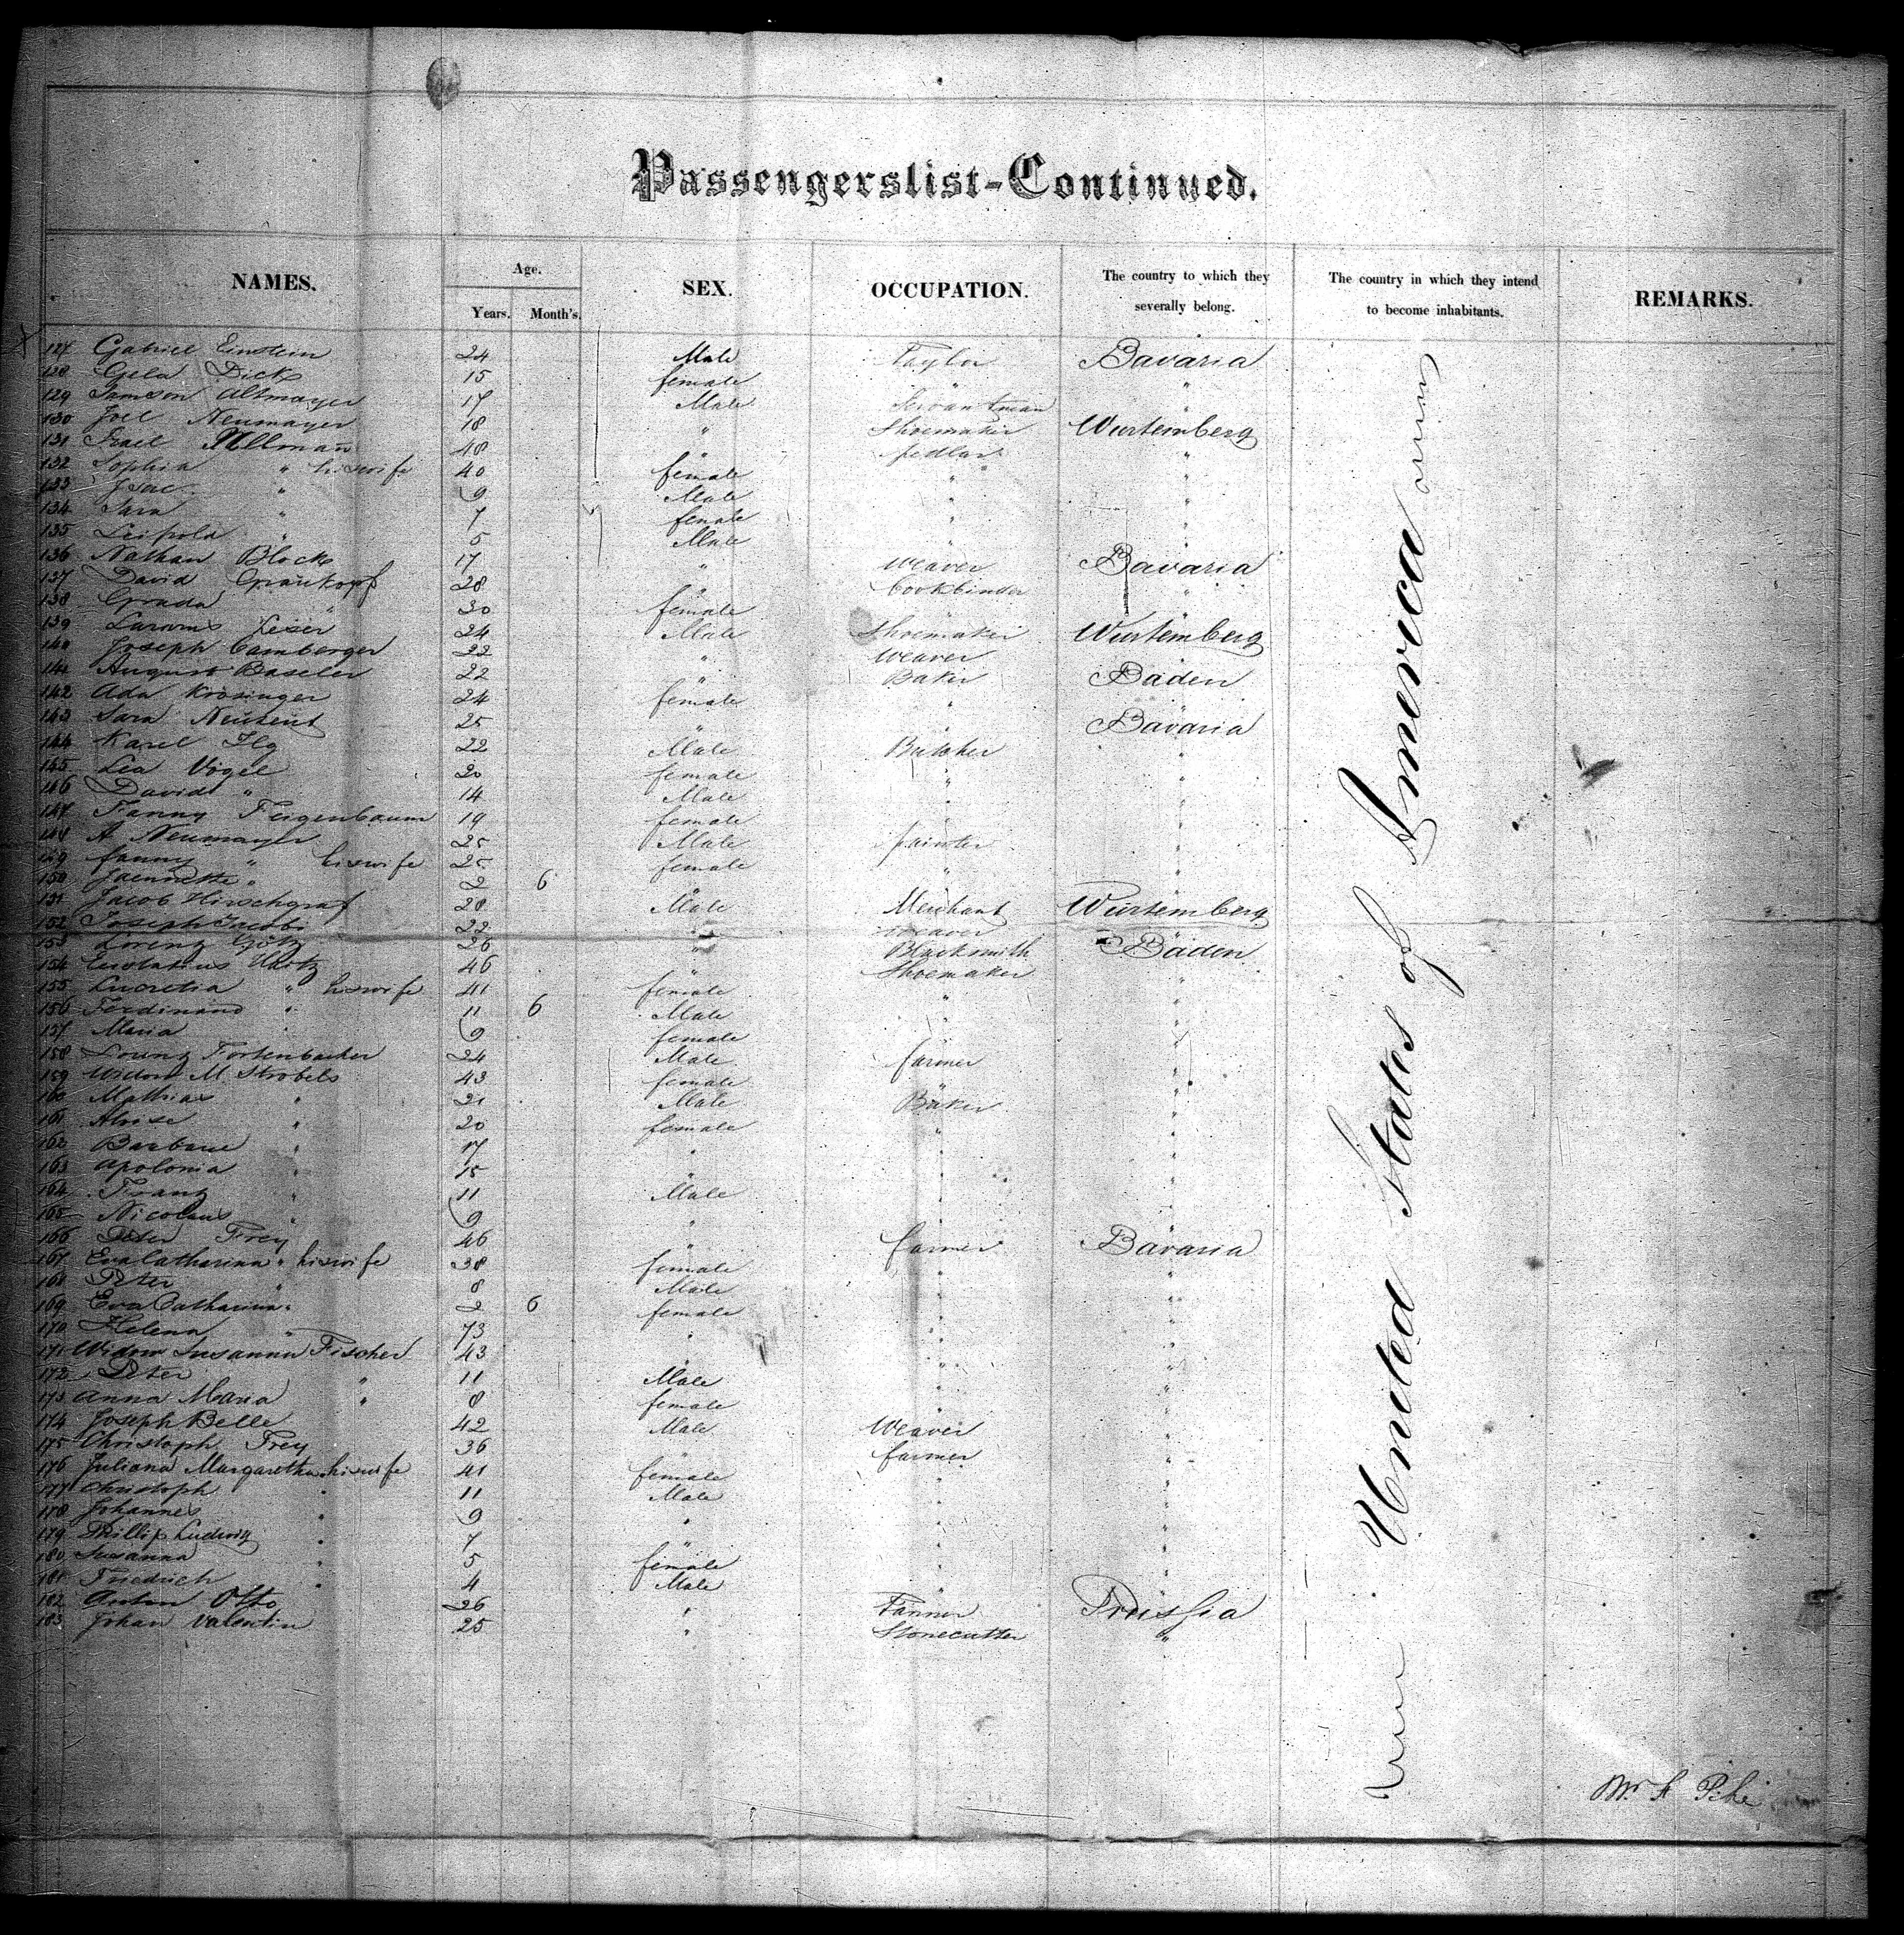 Passengerslist-Continued.
NAMES. Age. Years. Month's. SEX. OCCUPATION. The country to which they severally belong. The country in which they intend to become inhabitants. REMARKS.
127 Gabriel Einstein 24 Male Taylor Bavaria
128 Gela Dick 15 female " "
129 Samson Altmayer 17 Male Servantman "
130 Joel Neumayer 18 " Shoemaker Wurtemberg
131 Israel Ullmann 48 " pedlar "
132 Sophia " his wife 40 female " "
133 Isac " 9 Male " "
134 Sara " 7 female " "
135 Leipold " 5 Male " "
136 Nathan Block 17 " Weaver Bavaria
137 David 28 " bookbinder "
138 " 30 female
139 Leser 24 Male Shoemaker Wurtemberg
140 Joseph Bamberger 22 " Weaver
141 August Baseler 22 " Baker Baden
142 Ada Krosinger 24 female "
143 Sara 25 " " Bavaria
144 Karel Ilg 22 Male Butcher "
145 Lea Vogel 20 female " "
146 David " 14 Male " "
147 Fanny Feigenbaum 19 female "
148 A Neumayer 25 Male painter "
149 fanny " his wife 25 female "
150 " 2 6 " " "
151 Jacob Hirschgraf 28 Male Merchant Würtemberg
152 Joseph Jacobi 22 " weaver
153 Lorenz Götz 26 " Blacksmith Baden
154 46 Shoemaker
155 Lucretia " his wife 41 female " "
156 Ferdinand " 11 6 Male " "
157 Maria " 9 female "
158 Fortenbacher 24 Male farmer "
159 Widow M. Strobels 43 female "
160 Mathias " 21 Male Baker "
161 " 20 female " "
162 " 17 " " "
163 Apolonia " 15 " " "
164 Franz " 11 Male " "
165 Nicolaus " 9 " "
166 Peter Frey 46 farmer Bavaria
167 Eva Catharina " his wife 38 female " "
168 Peter " 8 Male " "
169 Eva Catharina " 2 6 female " "
170 Helena " 73 " " "
171 Widow Susanna Fischer 43 " " "
172 Peter " 11 Male " "
173 Anna Maria " 8 female " "
174 Joseph Belle 42 Male Weaver "
175 Christoph Frey 36 " farmer "
176 Juliana Margaretha his wife 41 female " "
177 Christoph " 11 Male " "
178 Johannes " 9 " " "
179 Phillip Ludwig " 7 " " "
180 Susanna " 5 female " "
181 Friedrich " 4 Male " "
182 Anton Otto 26 " Prussia
183 Johan Valentin 25 " Stonecutter "
United States of America